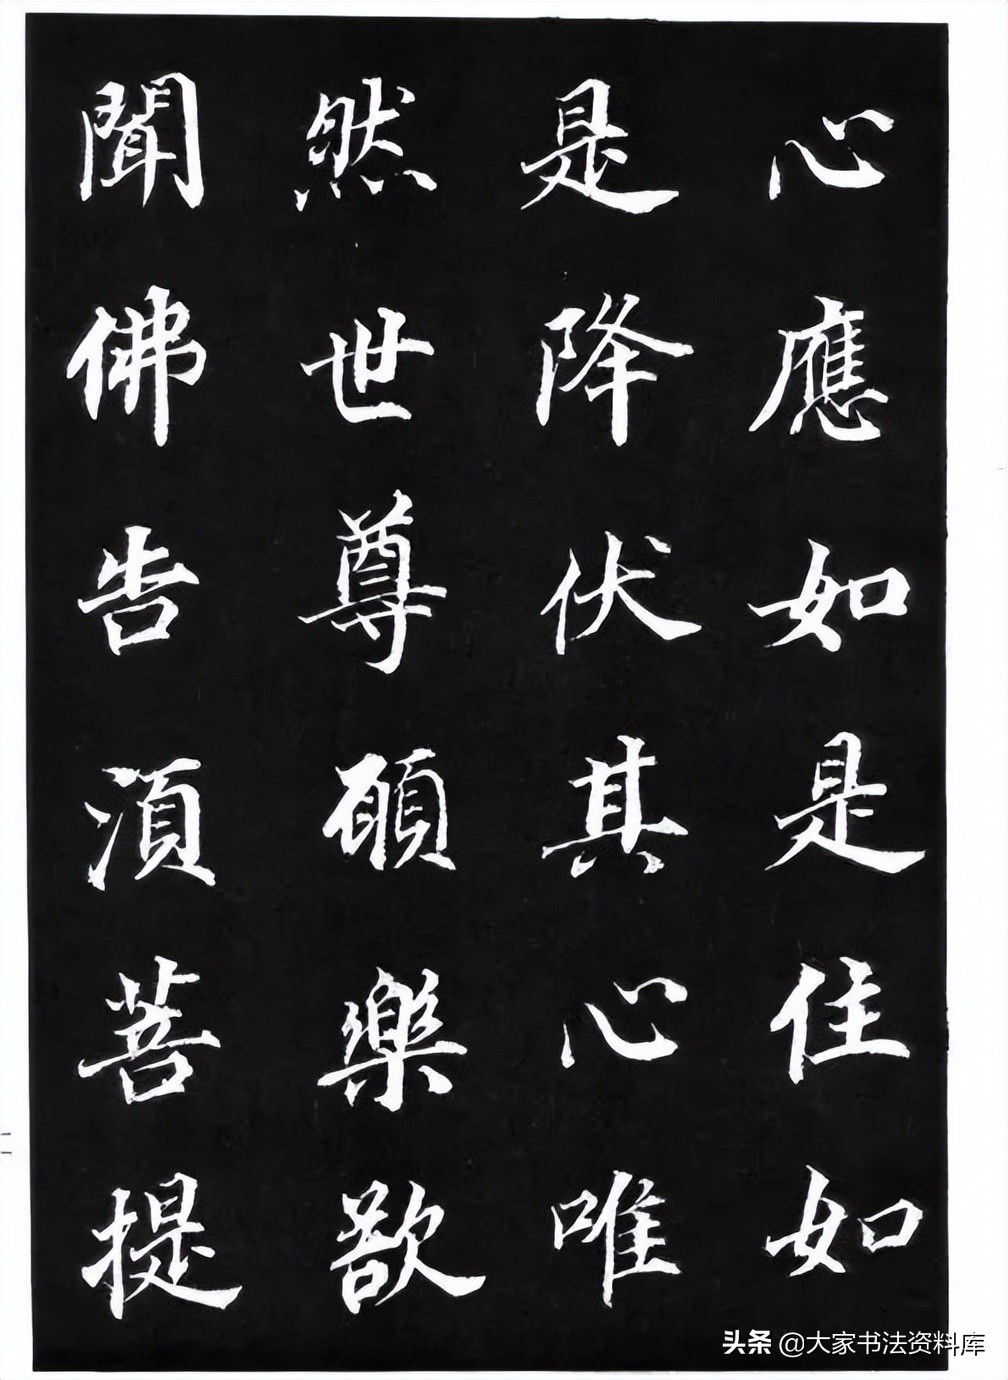 心應如是住如
是降伏其心唯
然世尊願樂欲
聞佛告湏菩提
二
头条 @大家书法资料库